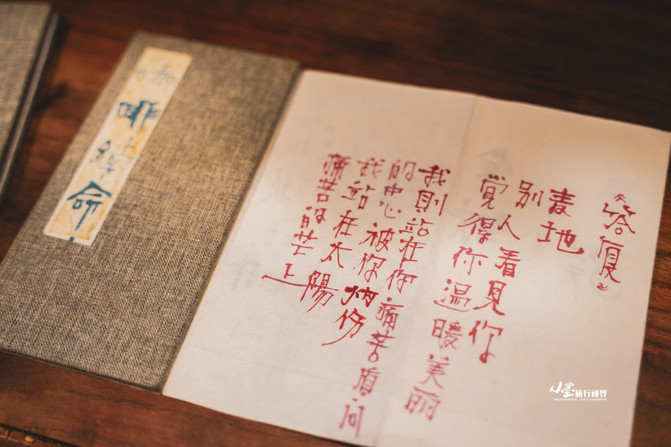 咖啡命
《答復》
麦地
别人看見你
覺得你温暖美丽
我則站在你痛苦质问
的中心被你灼伤
我站在太陽
痛苦的芒上
小墨旅行視界